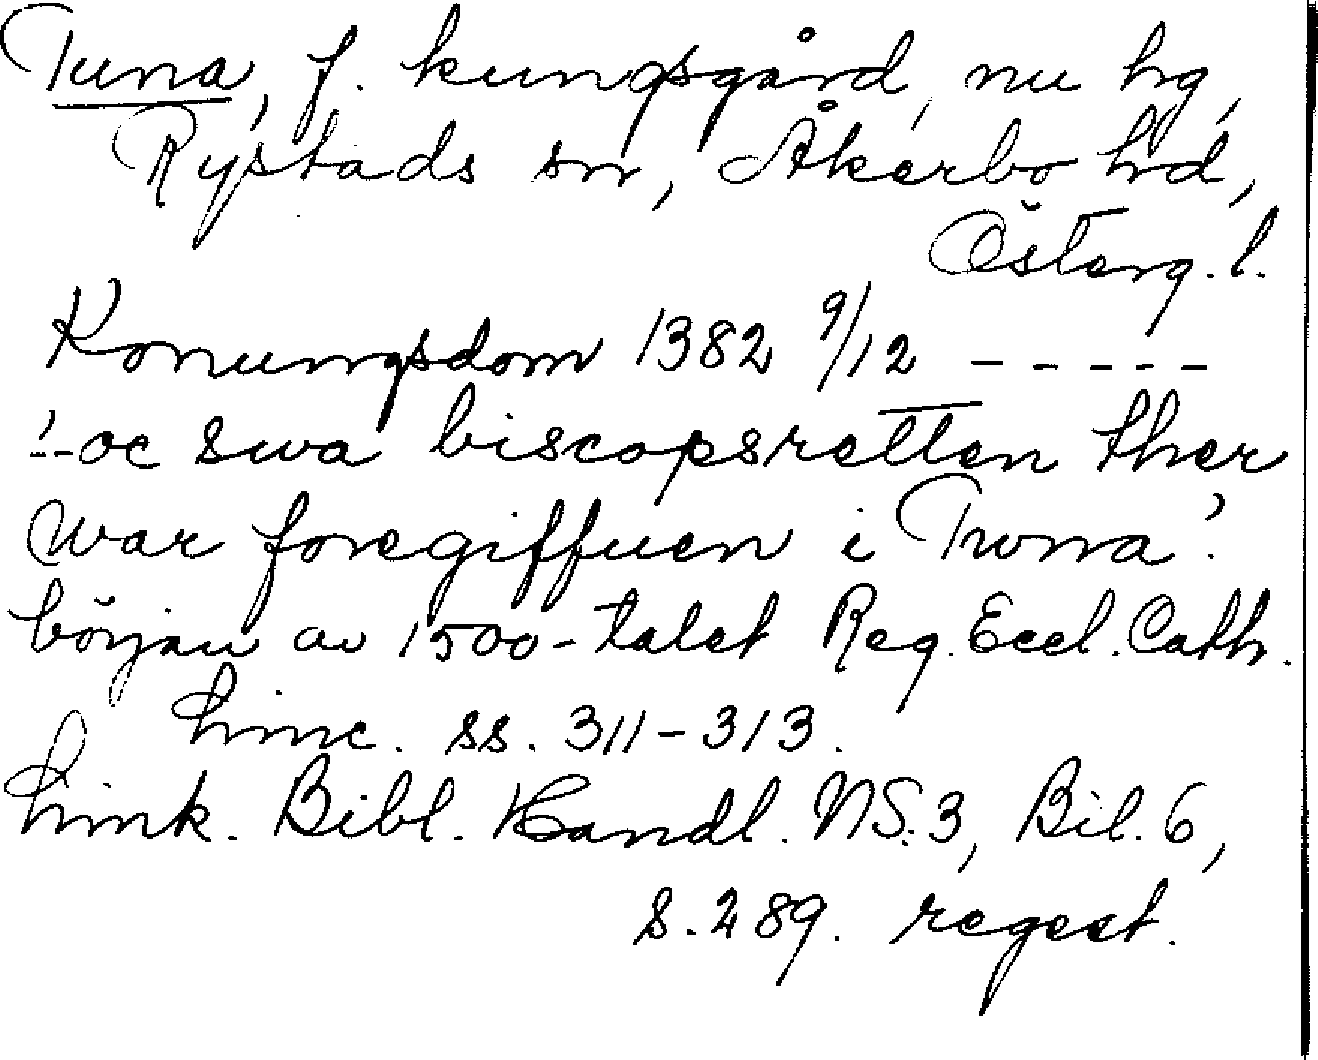 Tuna, f. kungsgård, nu hg,
Rystads sn, Åkerbo hd,
Österg. l.
Konungsdom 1382 9/12 - - - - -
'--oc swa biscopsretten ther
war foregiffuen i Twna'.
början av 1500-talet Reg. Eccl. Cath.
Linc. ss. 311-313.
Link. Bibl. Handl. NS. 3, Bil. 6,
s. 289. regest.